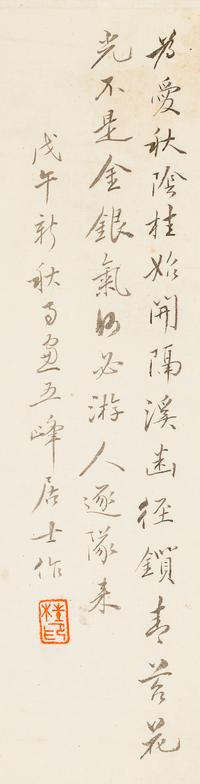 為愛秋陰桂始開隔溪幽徑鎖青苔花
光不是金銀氣何必游人逐隊来
戊午新秋写画五峰居士作